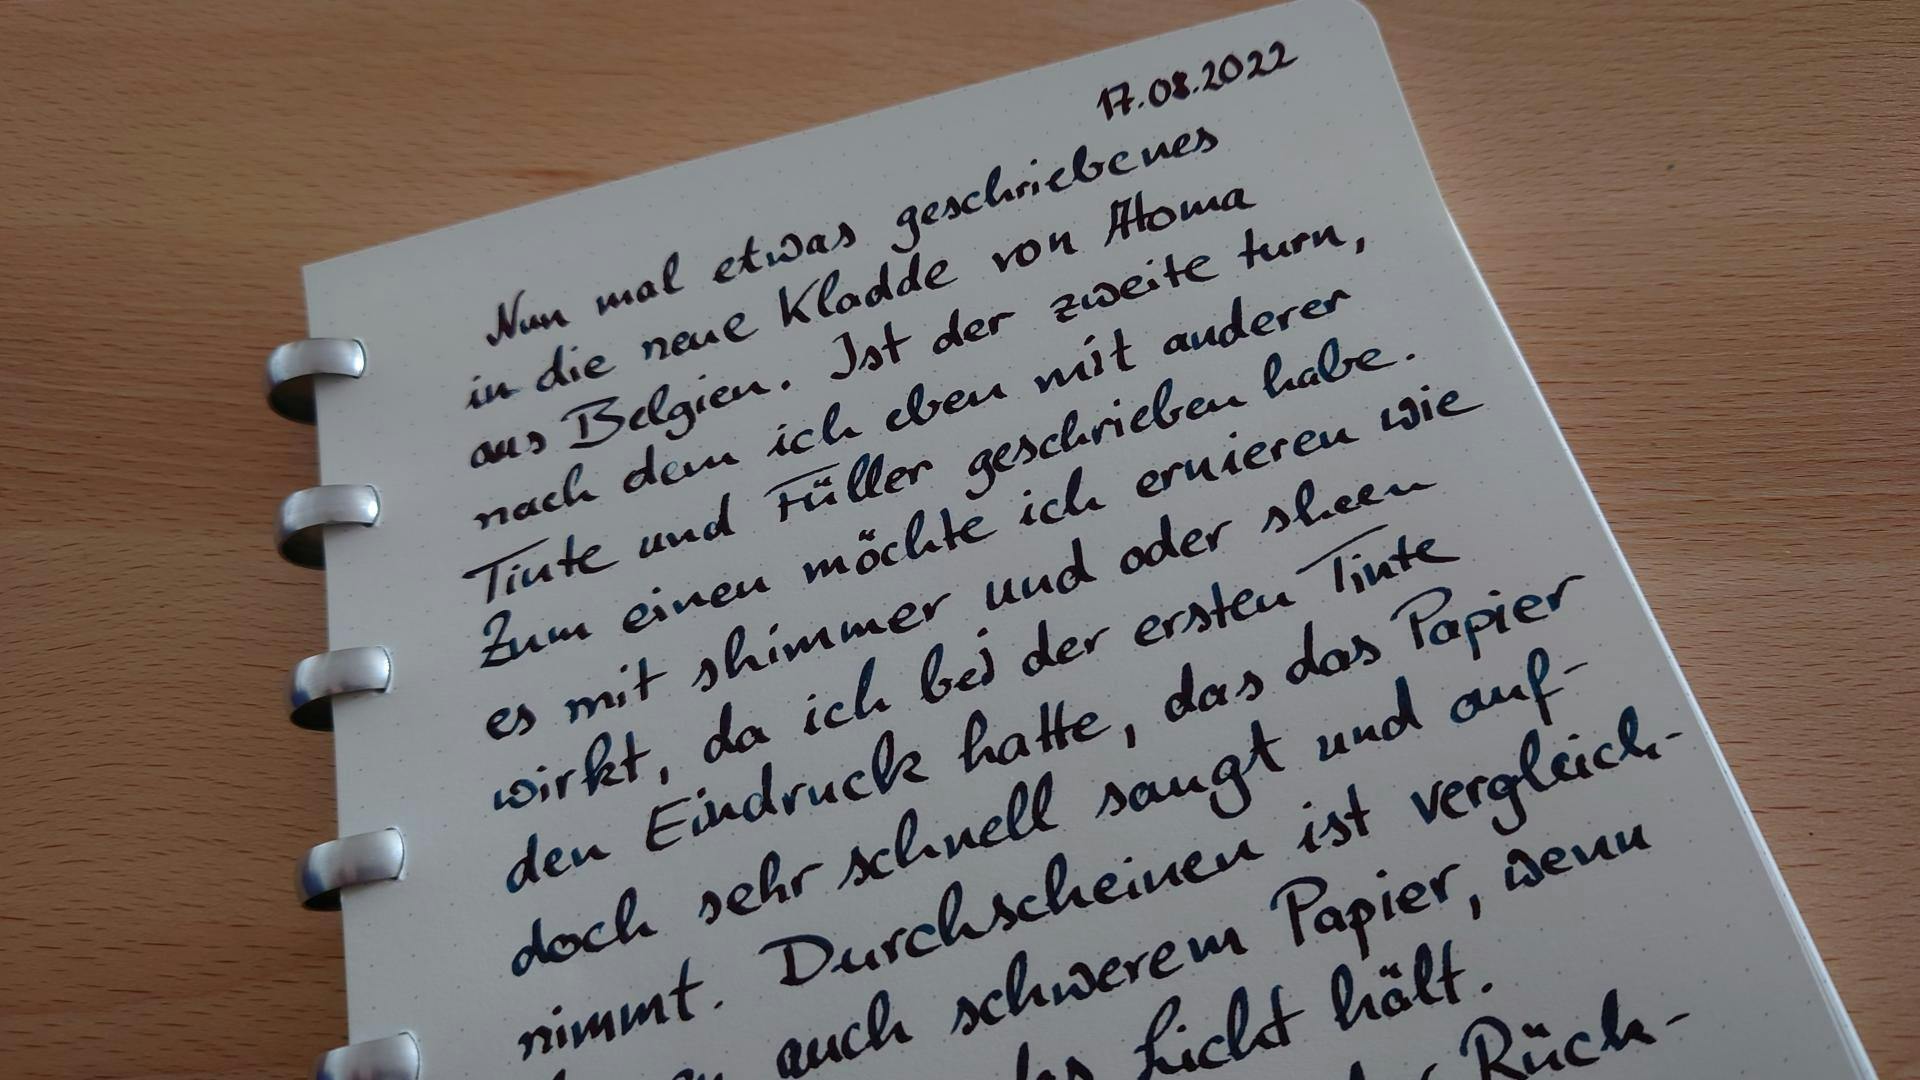 17.08.2022
Nun mal etwas geschriebenes
in die neue Kladde von Atoma
aus Belgien. Ist der zweite turn,
nach dem ich eben mit anderer
Tinte und Füller geschrieben habe.
Zum einen möchte ich eruieren wie
es mit shimmer und oder sheen
wirkt, da ich bei der ersten Tinte
den Eindruck hatte, das das Papier
doch sehr schnell saugt und auf-
nimmt. Durchscheinen ist vergleich-
auch schwerem Papier, wenn
Licht hält.
Rück-